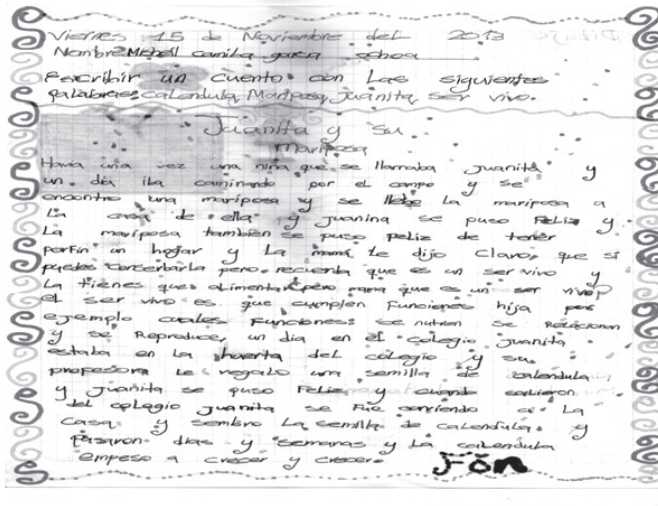 Viernes 15 de Noviembre del 2013
Nombre Michell camila garcia ochoa
Escribir un cuento con Las siguientes
palabras: calendula, Mariposa, Juanita, ser vivo.
Juanita y su
mariposa
Havia una vez una niña que se llamaba Juanita y
un dia iba caminando por el campo y se
encontro una mariposa y se llebo la mariposa a
La casa de ella y juanina se puso Feliz y
La mariposa tambien se puso feliz de tener
porfin un hogar y La mamá Le dijo Claro, que si
puedes conserbarla pero recuerda que es un ser vivo y
La tienes que alimentar pero mama que es un ser vivo?
el ser vivo es que cumplen Funciones hija por
ejemplo cuales Funciones: se nutren se Relacionan
y se Reproduce, un dia en el colegio Juanita
estaba en La huerta del colegio y su
profesora Le regalo una semilla de calendula
y Juanita se puso Feliz y cuando salieron
del colagio Juanita se Fue corriendo a La
casa y sembro La semilla de calendula y
pasaron dias y semanas y La calendula
empeso a crecer y crecer.
Fin